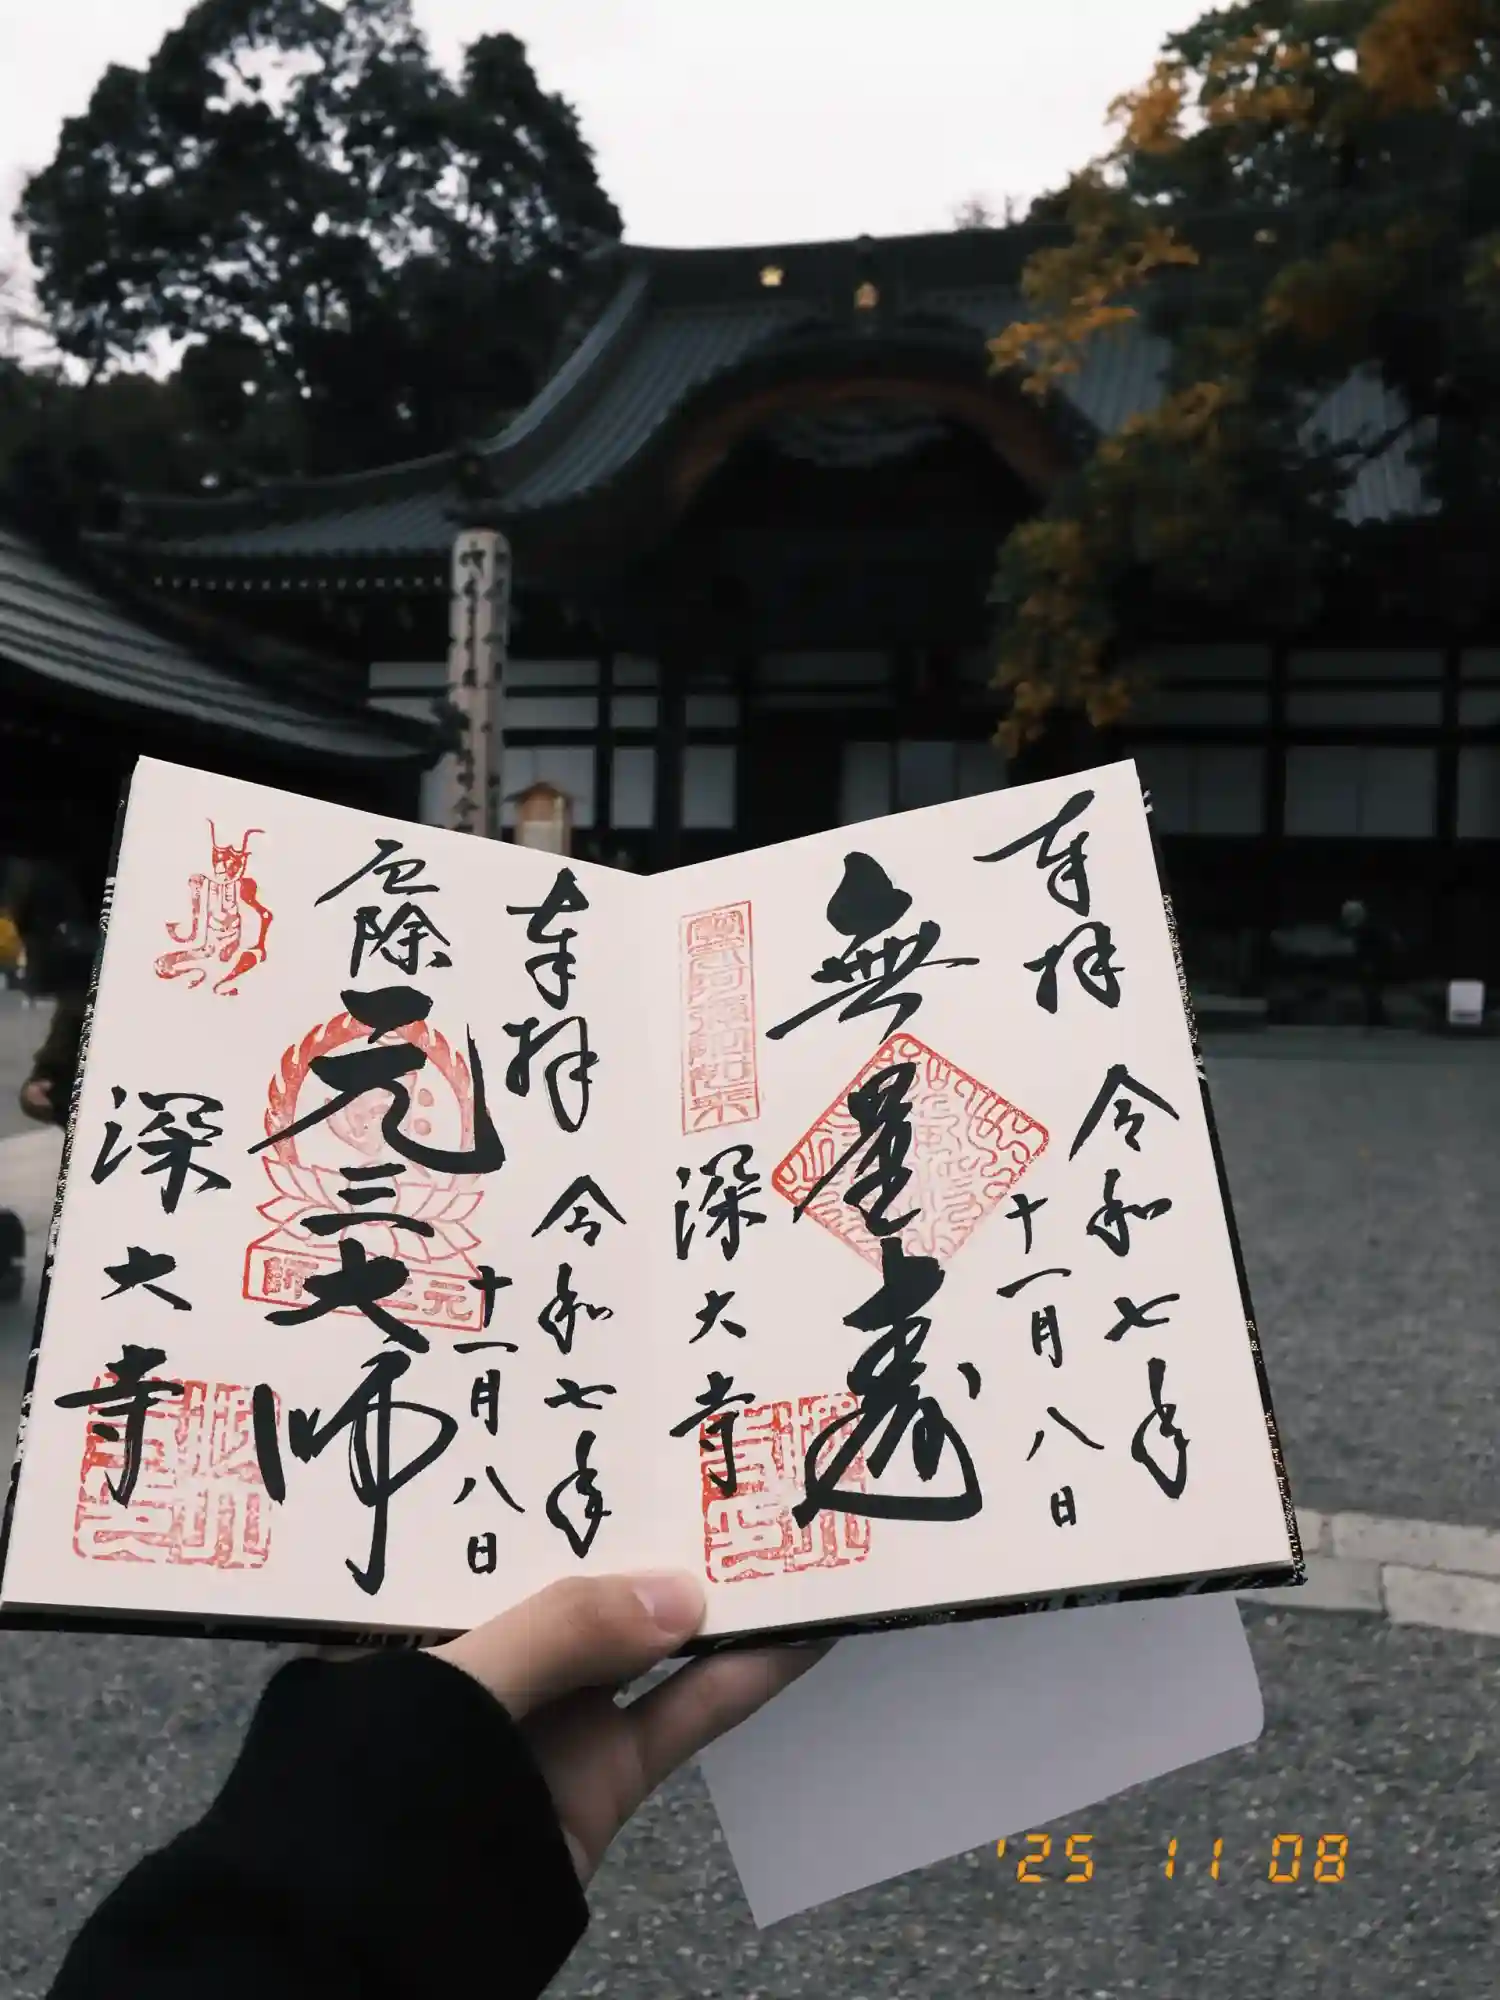 奉拝
令和七年
十一月八日
無量寿
深大寺
奉拝
令和七年
十一月八日
厄除
元三大師
元三大師
深大寺
'25 11 08